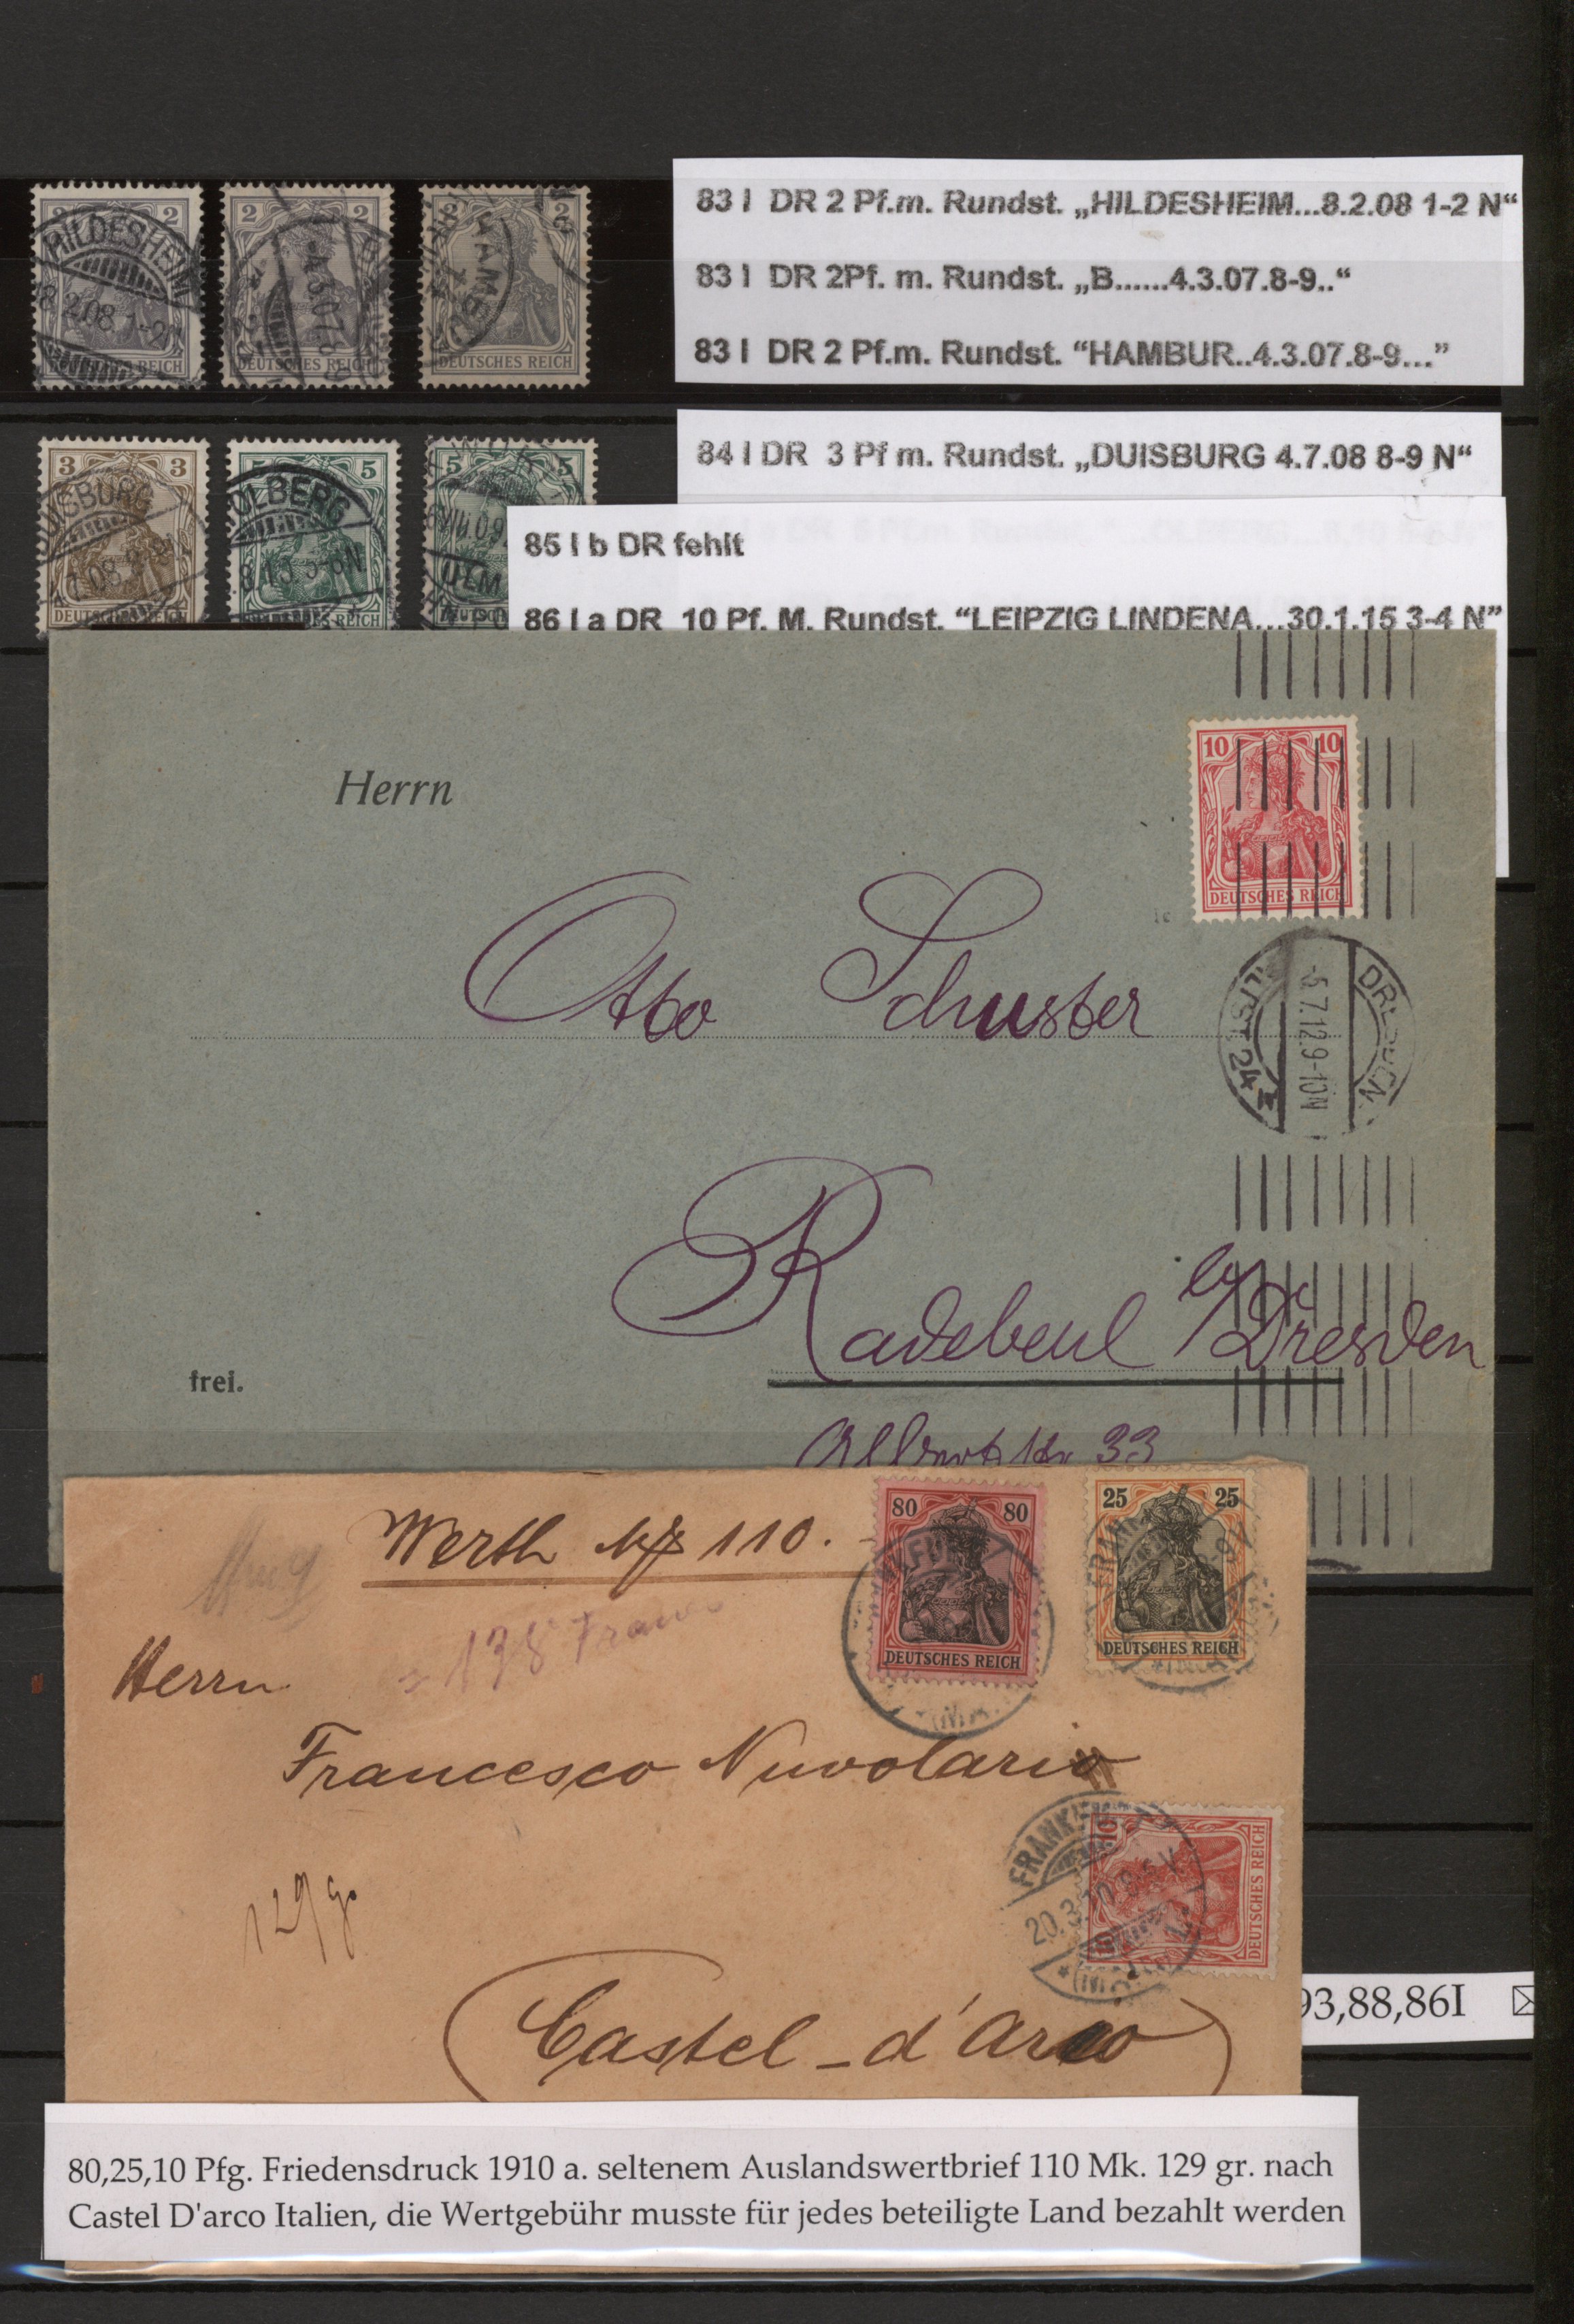 83 I DR 2 Pf.m. Rundst. „HILDESHEIM...8.2.08 1-2 N“
83 I DR 2Pf. m. Rundst. „B......4.3.07.8-9..“
83 I DR 2 Pf.m. Rundst. “HAMBUR..4.3.07.8-9...”
2 2
HILDESHEIM
8.2.08 1-2
DEUTSCHES REICH
2 2
DEUTSCHES REICH
2 2
HAMBU
DEUTSCHES REICH
84 I DR 3 Pf m. Rundst. „DUISBURG 4.7.08 8-9 N“
3 3
DUISBURG
4.7.08 8-9N
DEUTSCHES REICH
5 5
OLBERG
REICH
5 5
ULM
85 I b DR fehlt
86 I a DR 10 Pf. M. Rundst. “LEIPZIG LINDENA...30.1.15 3-4 N”
10 10
DEUTSCHES REICH
Herrn
Otto Schuster
DRESDEN
-5.7.12.9-10N
24
Radebeul b/Dresden
frei.
Albertstr 33
Werth Mk 110.
80 80
DEUTSCHES REICH
25 25
DEUTSCHES REICH
178 Franc
Herrn
Francesco Nuvolario
129 g.
FRANKFURT
20.3.10.
10
DEUTSCHES REICH
Castel - d'Arco
93,88,86I
80,25,10 Pfg. Friedensdruck 1910 a. seltenem Auslandswertbrief 110 Mk. 129 gr. nach
Castel D'arco Italien, die Wertgebühr musste für jedes beteiligte Land bezahlt werden